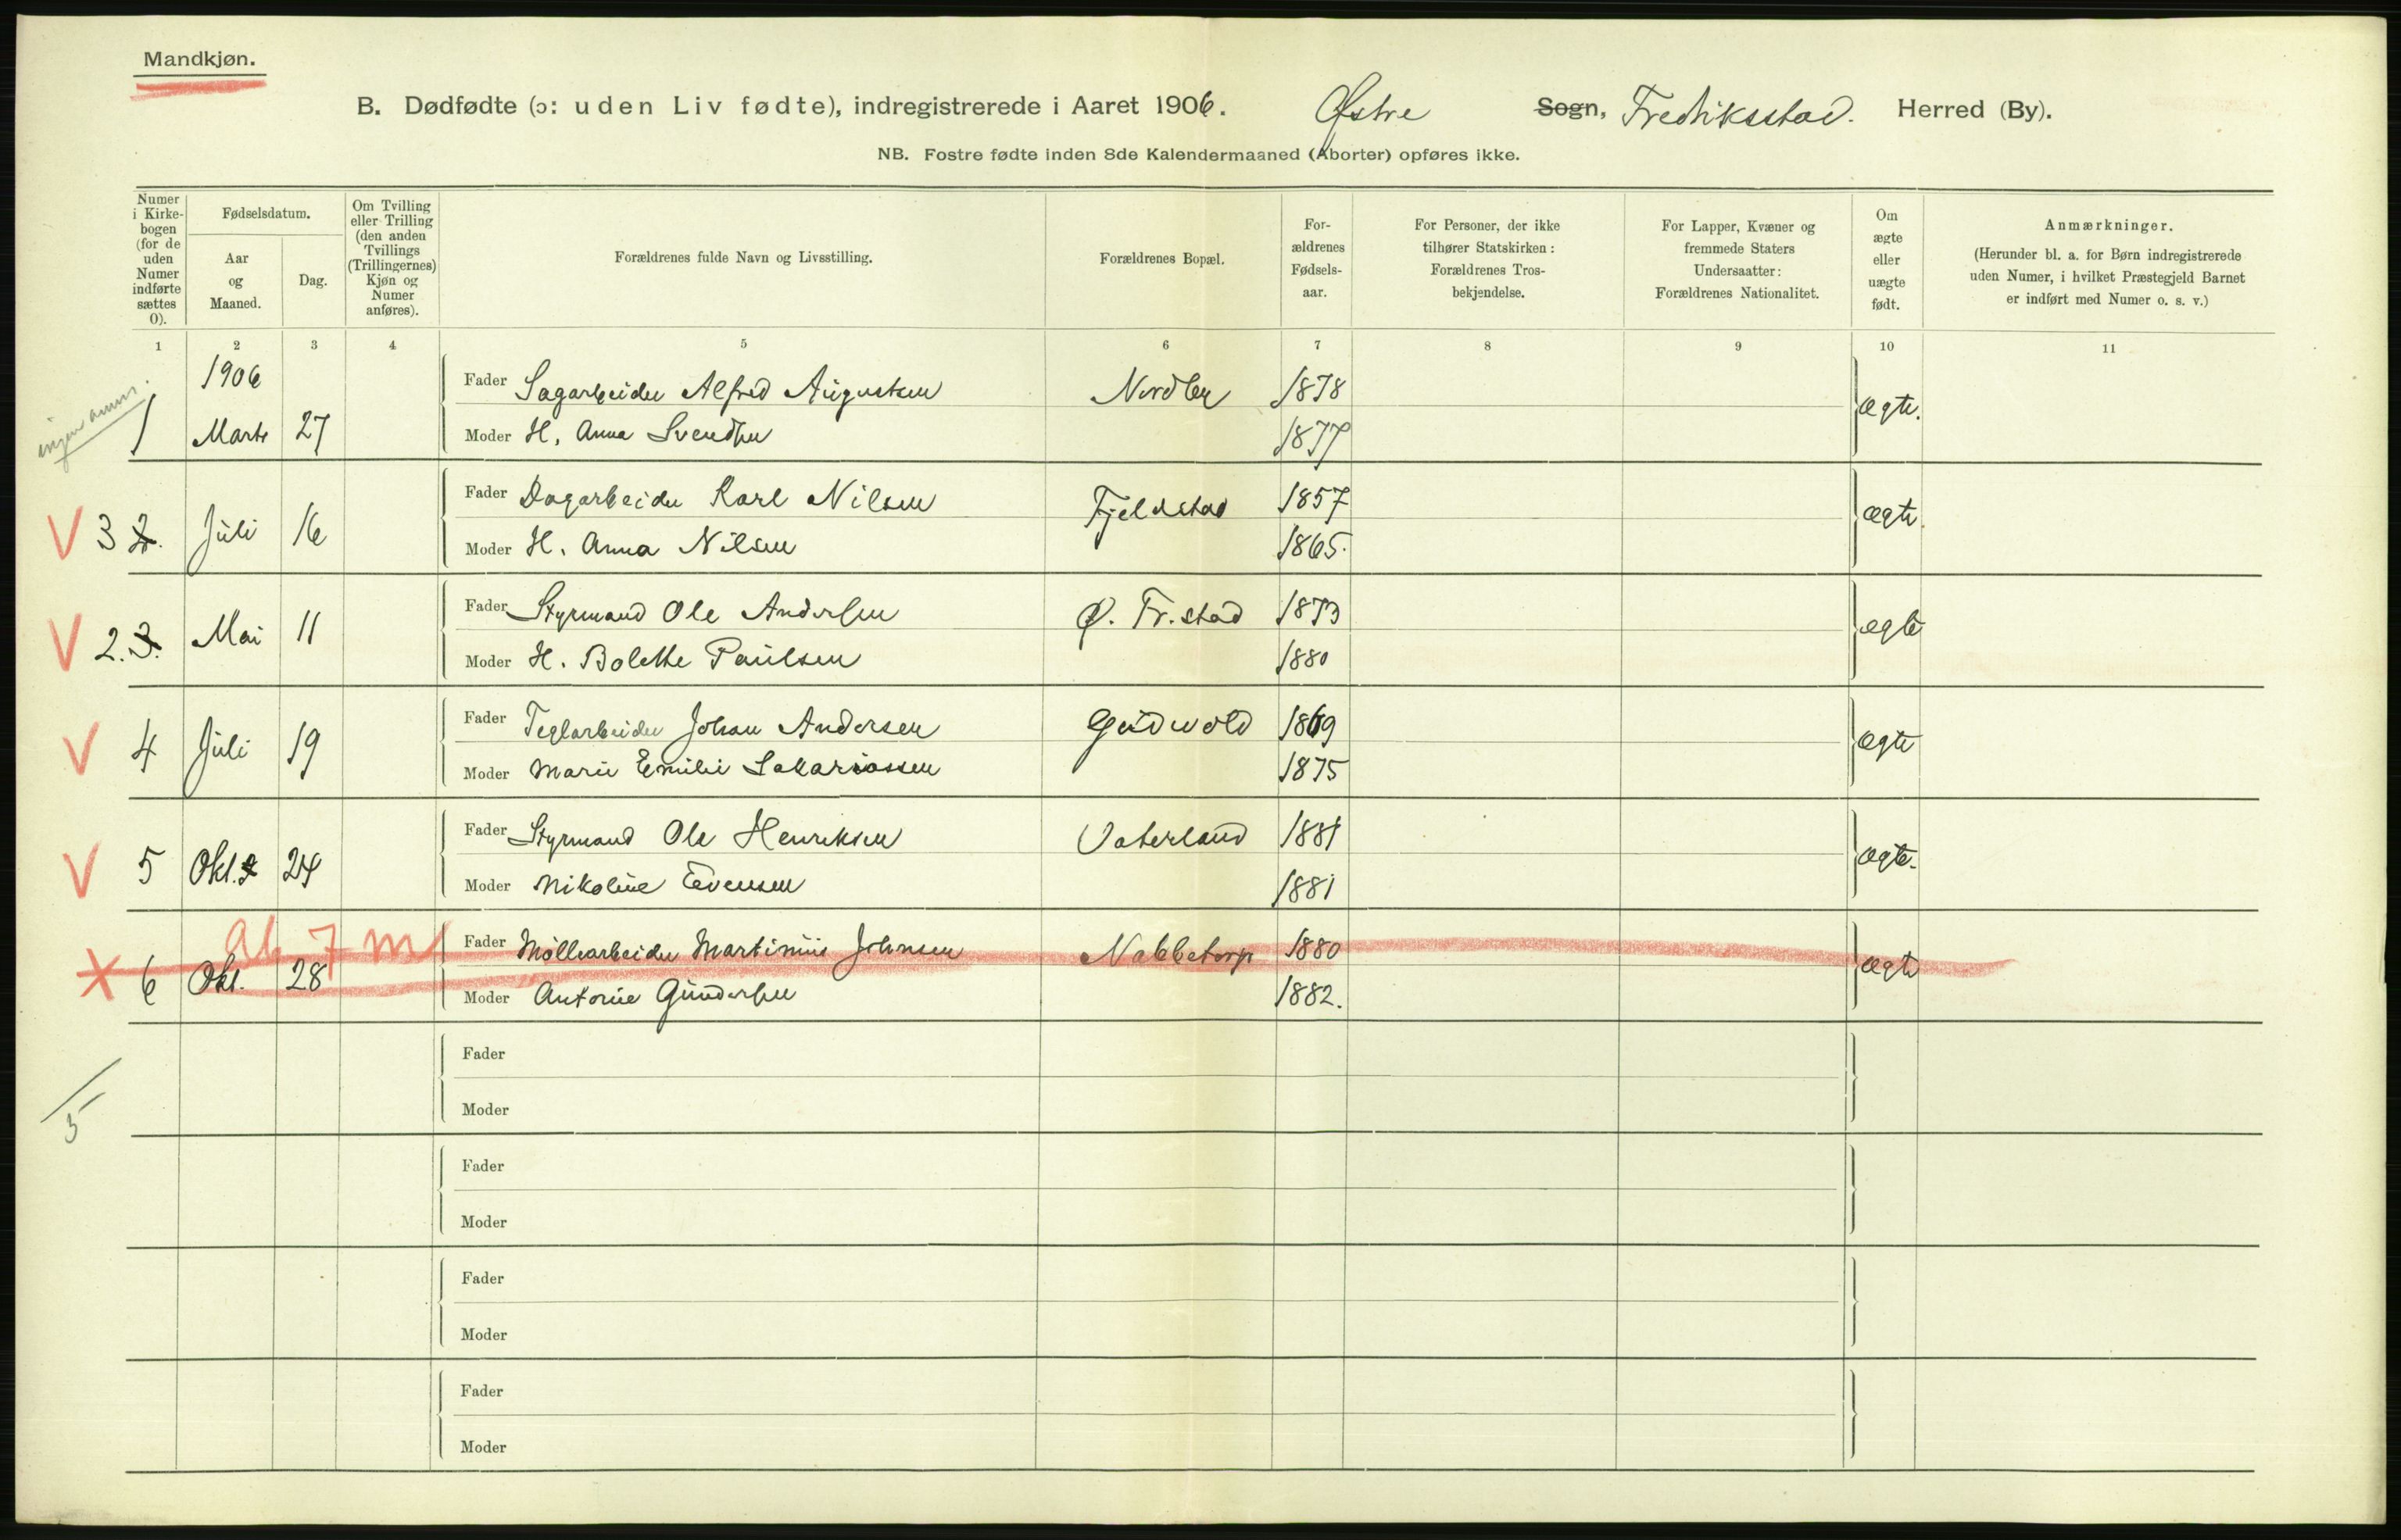 Mandkjøn.
B. Dødfødte (ɔ: uden Liv fødte), indregistrerede i Aaret 1906. Østre Sogn, Fredriksstad. Herred (By).
NB. Fostre fødte inden 8de Kalendermaaned (Aborter) opføres ikke.
Numer i Kirke-bogen (for de uden Numer indførte sættes 0).
Fødselsdatum.
Aar og Maaned.
Dag.
Om Tvilling eller Trilling (den anden Tvillings (Trillingernes) Kjøn og Numer anføres).
Forældrenes fulde Navn og Livsstilling.
Forældrenes Bopæl.
For-ældrenes Fødsels-aar.
For Personer, der ikke tilhører Statskirken: Forældrenes Tros-bekjendelse.
For Lapper, Kvæner og fremmede Staters Undersaatter: Forældrenes Nationalitet.
Om ægte eller uægte født.
Anmærkninger.
(Herunder bl. a. for Børn indregistrerede uden Numer, i hvilket Præstegjeld Barnet er indført med Numer o. s. v.)
1 2 3 4 5 6 7 8 9 10 11
ingen anm.
1906
Fader Sagarbeider Alfred Augustsen Nordby 1878
1 Marts 27 Moder H. Anna Svendsen 1877 ægte.
Fader Dagarbeider Karl Nilsen Fjeldstad 1857
V 3 2. Juli 16 Moder H. Anna Nilsen 1865. ægte
Fader Styrmand Ole Andersen Ø. Fr.stad 1873
V 2. 3. Mai 11 Moder H. Bolette Paulsen 1880 ægte
Fader Teglarbeider Johan Andersen Gudevold 1869
V 4 Juli 19 Moder Marie Emilie Sakariassen 1875 ægte
Fader Styrmand Ole Henriksen Vaterland 1881
V 5 Okt. 24 Moder Nikoline Evensen 1881 ægte.
Ab 7 m
Fader Møllearbeider Martinius Johnsen Nabbetorp 1880
6 Okt. 28 Moder Antonie Gundersen 1882. ægte
Fader
Moder
5
Fader
Moder
Fader
Moder
Fader
Moder